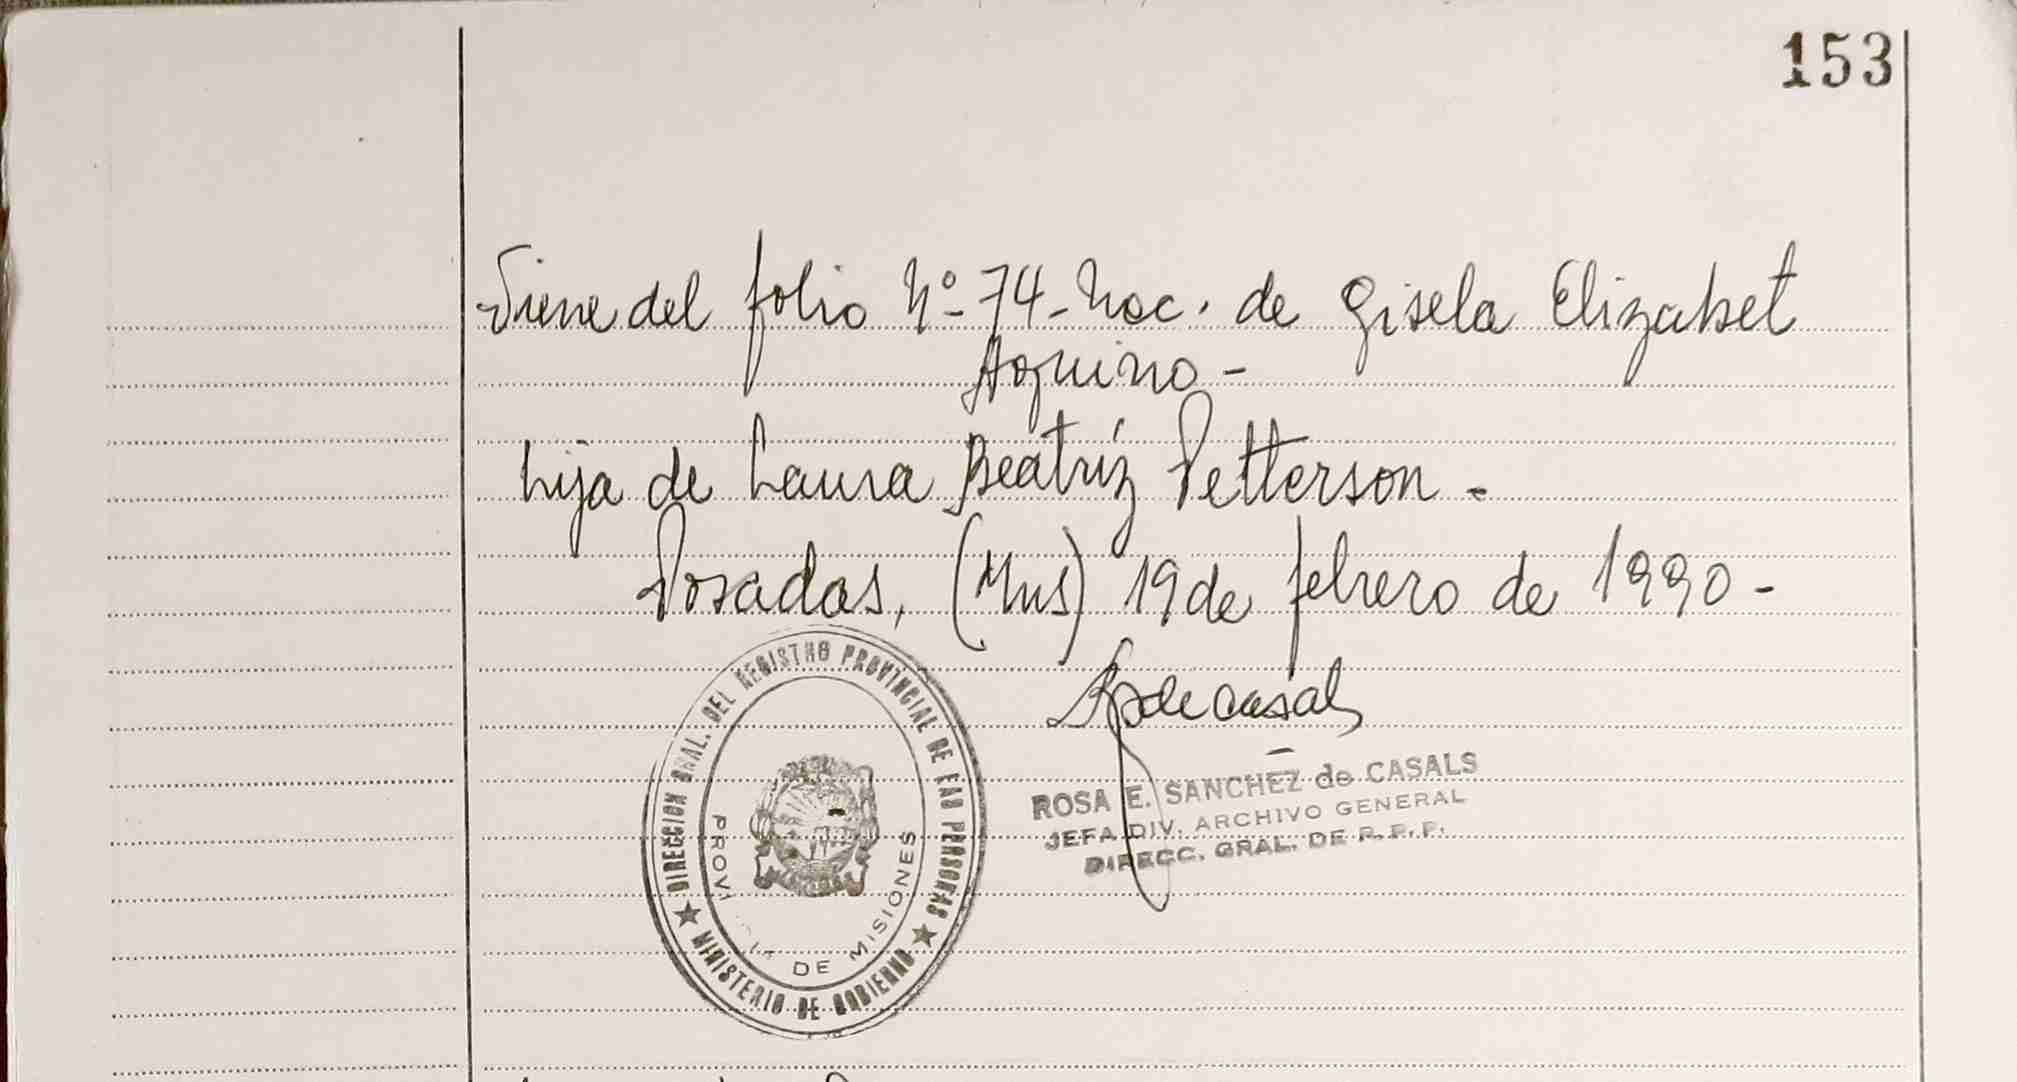 153
Viene del folio Nº 74 - Nac. de Gisela Elizabet
Aquino -
hija de Laura Beatríz Petterson -
Posadas, (Mns) 19 de febrero de 1990 -
R de Casals
ROSA E. SANCHEZ de CASALS
JEFA DIV. ARCHIVO GENERAL
DIRECC. GRAL. DE R. P. P.
DIRECCION GRAL. DEL REGISTRO PROVINCIAL DE LAS PERSONAS
★ MINISTERIO DE GOBIERNO ★
PROVINCIA DE MISIONES